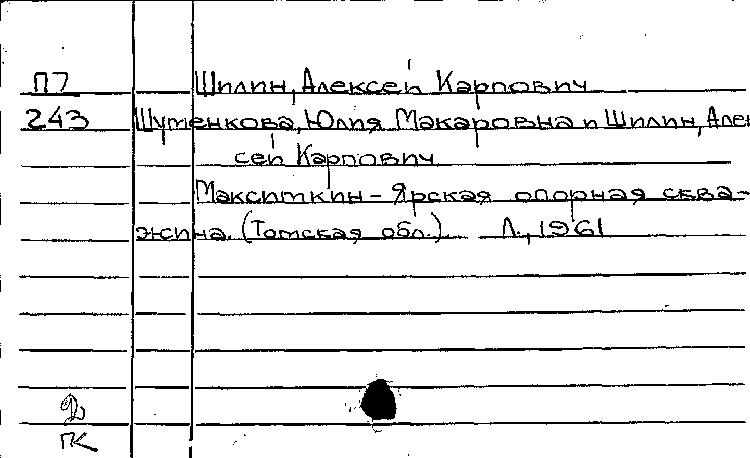 П7 Шилин, Алексей Карпович
243 Шутенкова, Юлия Макаровна и Шилин, Алек
сей Карпович
Максимкин-Ярская опорная сква-
жина. (Томская обл.). Л., 1961
ПК